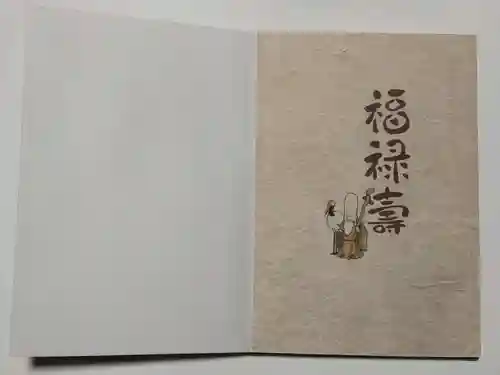 福
禄
壽